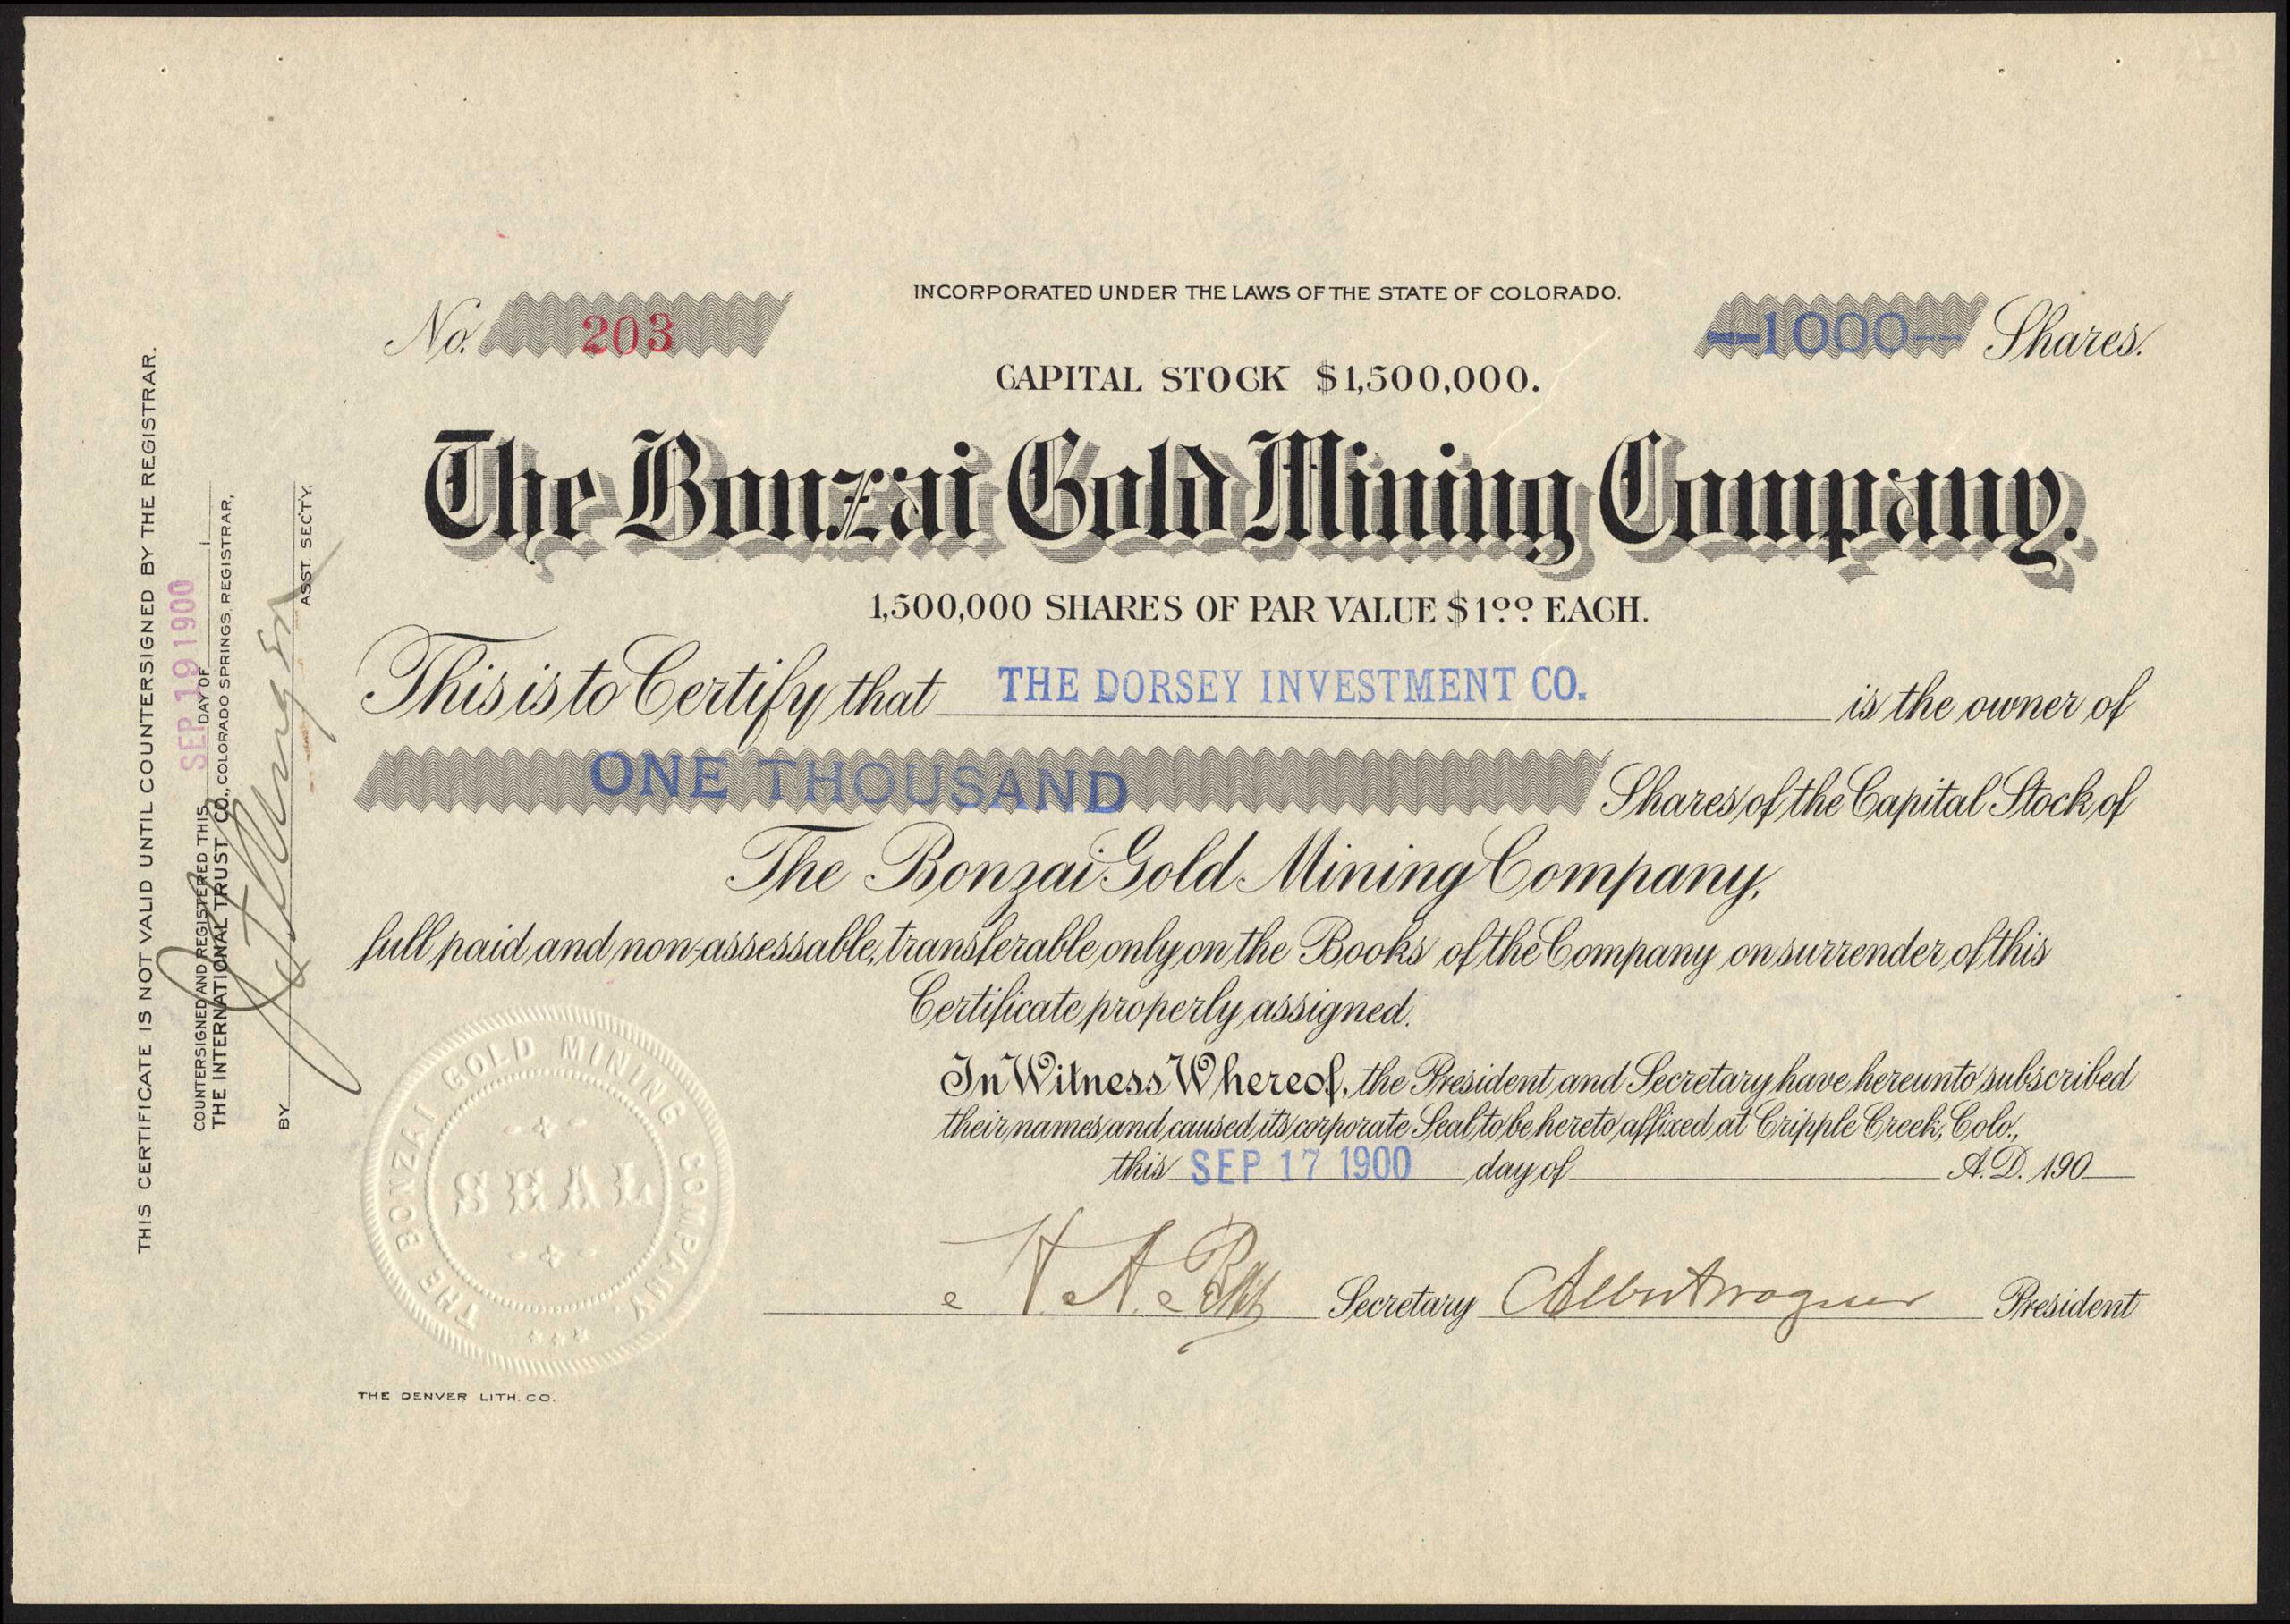 INCORPORATED UNDER THE LAWS OF THE STATE OF COLORADO.
No. 203
—1000— Shares.
CAPITAL STOCK $1,500,000.
The Bonzai Gold Mining Company.
1,500,000 SHARES OF PAR VALUE $1.00 EACH.
This is to Certify that THE DORSEY INVESTMENT CO. is the owner of
ONE THOUSAND Shares of the Capital Stock of
The Bonzai Gold Mining Company,
full paid and non-assessable, transferable only on the Books of the Company on surrender of this
Certificate properly assigned.
In Witness Whereof, the President and Secretary have hereunto subscribed
their names and caused its corporate Seal to be hereto affixed at Cripple Creek, Colo.,
this SEP 17 1900 day of A.D. 190
H. A. Secretary Albert Wagner President
THE BONZAI GOLD MINING COMPANY.
SEAL
THE DENVER LITH. CO.
THIS CERTIFICATE IS NOT VALID UNTIL COUNTERSIGNED BY THE REGISTRAR.
COUNTERSIGNED AND REGISTERED THIS SEP 19 1900 DAY OF 1
THE INTERNATIONAL TRUST CO., COLORADO SPRINGS, REGISTRAR,
BY ASST. SECTY.